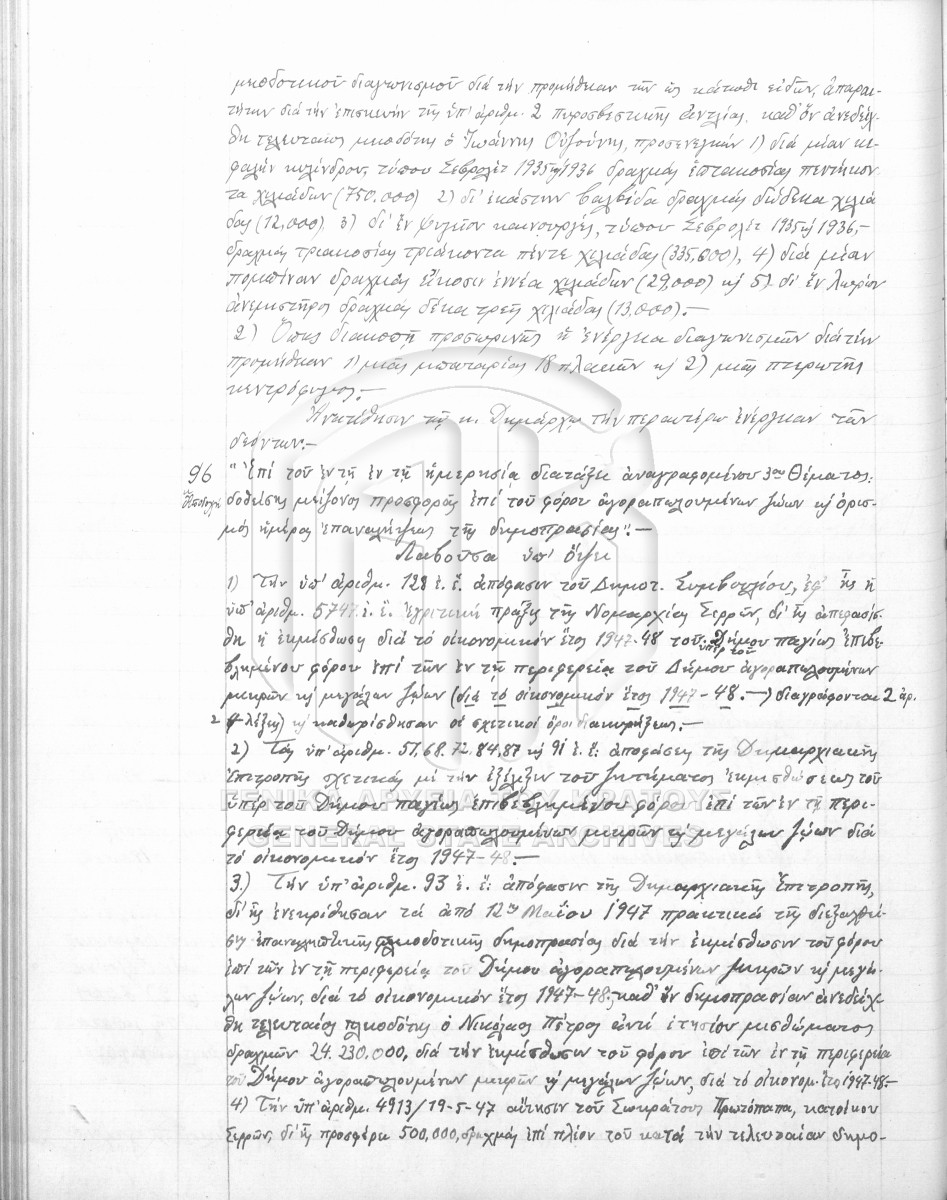 μειοδοτικοῦ διαγωνισμοῦ διά τήν προμήθειαν τῶν ὡς κάτωθι εἰδῶν, ἀπαραι-
τήτων διά τήν ἐπισκευήν τῆς ὑπ' ἀριθμ. 2 πυροσβεστικῆς ἀντλίας, καθ' ὅν ἀνεδείχ-
θη τελευταῖος μειοδότης ὁ Ἰωάννης Οὐζούνης, προσενεγκών 1) διά μίαν κε-
φαλήν κυλίνδρου, τύπου Σεβρολέτ 1935 ἤ 1936 δραχμάς ἑπτακοσίας πεντήκον-
τα χιλιάδων (750.000) 2) δι' ἑκάστην βαλβίδα δραχμάς δώδεκα χιλιά
δας (12,000) 3) δι' ἕν ψυγεῖον καινουργές, τύπου Σεβρολέτ 1935 ἤ 1936,-
δραχμάς τριακοσίας τριάκοντα πέντε χιλιάδας (335,000), 4) διά μίαν
δραχμάς εἴκοσιν ἐννέα χιλιάδων (29,000) κ 5) δι' ἕν
ἀνεμιστῆρος δραχμάς δέκα τρεῖς χιλιάδας (13,000).-
2) Ὅπως διακοπῇ προσωρινῶς ἡ ἐνέργεια διαγωνισμῶν διά τήν
προμήθειαν 1) μιᾶς μπαταρίας 18 πλακῶν κ 2) μιᾶς πτερωτῆς
κεντρόφυγος.-
Ἀνατέθησιν τῷ κ. Δημάρχῳ τήν περαιτέρω ἐνέργειαν τῶν
δεόντων.-
96 "Ἐπί τοῦ ἐν τῇ ἐν τῇ ἡμερησίᾳ διατάξει ἀναγραφομένου 3ου Θέματος:
δοθείσης μείζονος προσφορᾶς ἐπί τοῦ φόρου ἀγοραπωλουμένων ζώων κ ὁρισ-
μός ἡμέρας ἐπαναλήψεως τῆς δημοπρασίας".-
Λαβοῦσα ὑπ' ὄψει
1) Τήν ὑπ' ἀριθμ. 128 ἐ. ἔ. ἀπόφασιν τοῦ Δημοτ. Συμβουλίου, ἐφ' ἧς ἡ
ὑπ' ἀριθμ. 5747 ἐ. ἔ. ἐγκριτική πρᾶξις τῆς Νομαρχίας Σερρῶν, δι' ἧς ἀπεφασίσ-
θη ἡ ἐκμίσθωσις διά τό οἰκονομικόν ἔτος 1947-48 τοῦ ὑπέρ τοῦ Δήμου παγίως ἐπιβε-
βλημένου φόρου ἐπί τῶν ἐν τῇ περιφερείᾳ τοῦ Δήμου ἀγοραπωλουμένων
μικρῶν κ μεγάλων ζώων (διά τό οἰκονομικόν ἔτος 1947-48.-) διαγράφονται 2 ἀρ.
λέξεις) κ καθωρίσθησαν οἱ σχετικοί ὅροι διακηρύξεως.-
2) Τάς ὑπ' ἀριθμ. 51, 68, 72, 84, 87 κ 91 ἐ. ἔ. ἀποφάσεις τῆς Δημαρχιακῆς
Ἐπιτροπῆς σχετικάς μέ τήν ἐξέλιξιν τοῦ ζητήματος ἐκμισθώσεως τοῦ
ὑπέρ τοῦ Δήμου παγίως ἐπιβεβλημένου φόρου ἐπί τῶν ἐν τῇ περι-
φερείᾳ τοῦ Δήμου ἀγοραπωλουμένων μικρῶν κ μεγάλων ζώων διά
τό οἰκονομικόν ἔτος 1947-48.-
3.) Τήν ὑπ' ἀριθμ. 93 ἐ. ἔ. ἀπόφασιν τῆς Δημαρχιακῆς Ἐπιτροπῆς,
δι' ἧς ἐνεκρίθησαν τά ἀπό 12ης Μαΐου 1947 πρακτικά τῆς διεξαχθεί-
σης ἐπαναληπτικῆς πλειοδοτικῆς δημοπρασίας διά τήν ἐκμίσθωσιν τοῦ φόρου
ἐπί τῶν ἐν τῇ περιφερείᾳ τοῦ Δήμου ἀγοραπωλουμένων μικρῶν κ μεγά-
λων ζώων, διά τό οἰκονομικόν ἔτος 1947-48.- καθ' ἥν δημοπρασίαν ἀνεδείχ
θη τελευταῖος πλειοδότης ὁ Νικόλαος Πέτρος ἀντί ἐτησίου μισθώματος
δραχμῶν 24.230.000, διά τήν ἐκμίσθωσιν τοῦ φόρου ἐπί τῶν ἐν τῇ περιφερείᾳ
τοῦ Δήμου ἀγοραπωλουμένων μικρῶν κ μεγάλων ζώων, διά τό οἰκονομ. ἔτος 1947-48.-
4) Τήν ὑπ' ἀριθμ. 4913/19-5-47 αἴτησιν τοῦ Σωκράτους Πρωτόπαπα, κατοίκου
Σερρῶν, δι' ἧς προσφέρει 500,000, δραχμάς ἐπί πλέον τοῦ κατά τήν τελευταίαν δημο-
ΓΕΝΙΚΑ ΑΡΧΕΙΑ ΤΟΥ ΚΡΑΤΟΥΣ
GENERAL STATE ARCHIVES